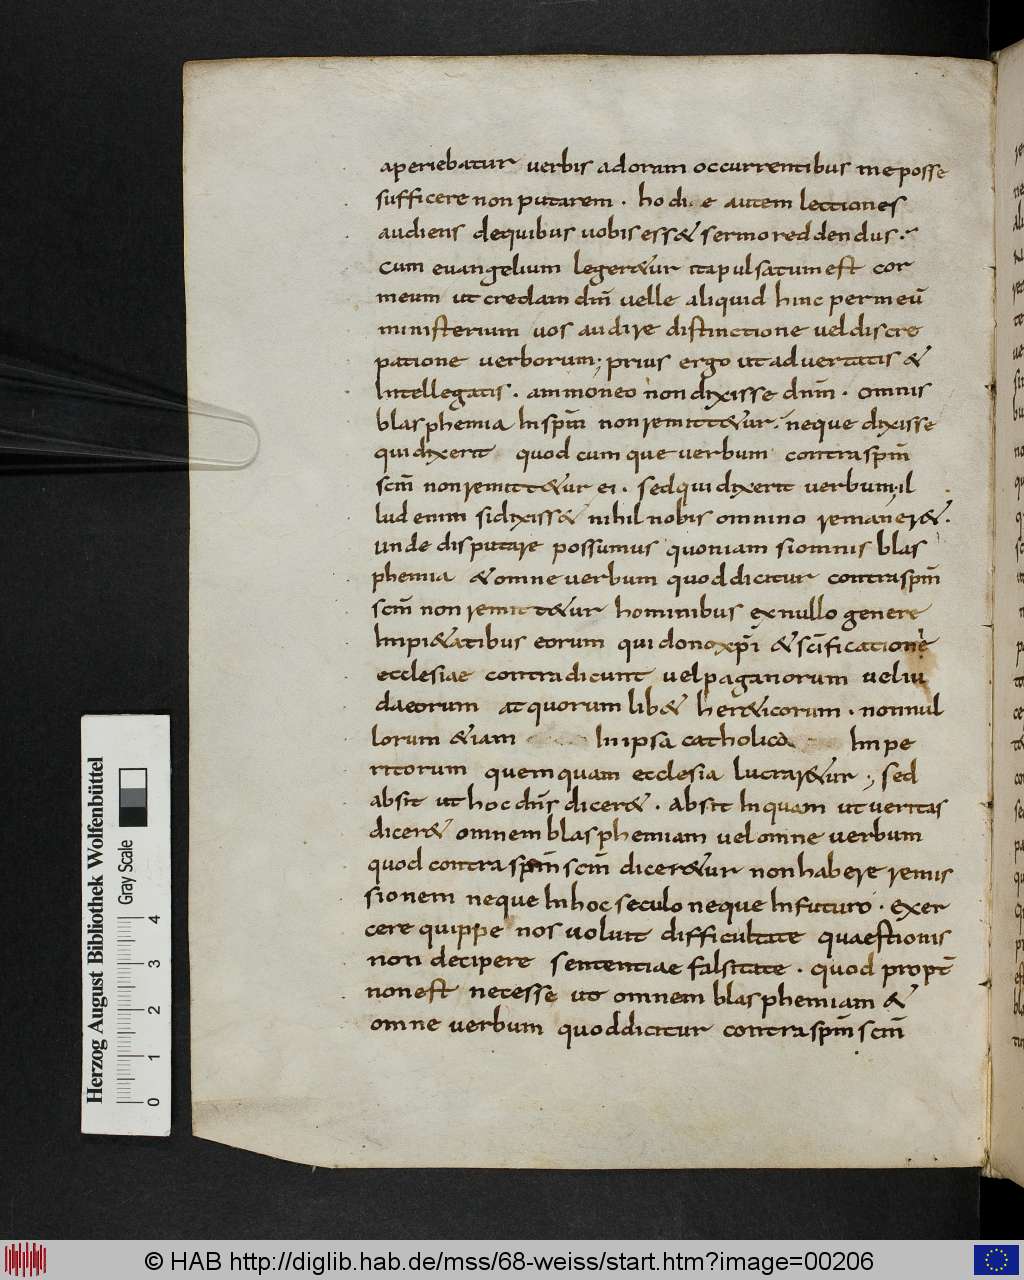 aperiebatur verbis adoram occurrentibus me posse
sufficere non putarem · hodi e autem lectiones
audiens dequibus uobis ess& sermo reddendus ·
cum euangelium leger&ur ita pulsatum est cor
meum ut credam dn̄m uelle aliquid hinc per meū
ministerium uos audire distinctione uel discre
patione verborum; prius ergo ut advertatis &
Intellegatis · ammoneo non dixisse dnm̄ · omnis
blasphemia In spm̄ non remitt&ur · neque dixisse
qui dixerit quodcumque verbum contra spm̄
scm̄ non remitt&ur ei · sed qui dixerit verbum; il
lud enim si dixiss& nihil nobis omnino remaner& ·
unde disputare possumus quoniam si omnis blas
phemia & omne verbum quod dicitur contra spm̄
scm̄ non remitt&ur hominibus ex nullo genere
Impi&atibus eorum qui dono xp̄i & scīficatione
ecclesiae contradicunt uel paganorum uel iu
daeorum at quorum lib& her&icorum · nonnul
lorum &iam In ipsa catholica Impe
ritorum quemquam ecclesia lucrar&ur ; sed
absit ut hoc dn̄s dicer& · absit Inquam ut veritas
dicer& omnem blasphemiam vel omne verbum
quod contra spm̄ scm̄ dicer&ur non habere remis
sionem neque In hoc seculo neque In futuro · exer
cere quippe nos voluit difficultate quaestionis
non decipere sententiae falsitate · quod propt̄
non est necesse ut omnem blasphemiam &
omne verbum quod dicitur contra spm̄ scm̄
Herzog August Bibliothek Wolfenbüttel
Gray Scale
0 1 2 3 4
© HAB http://diglib.hab.de/mss/68-weiss/start.htm?image=00206